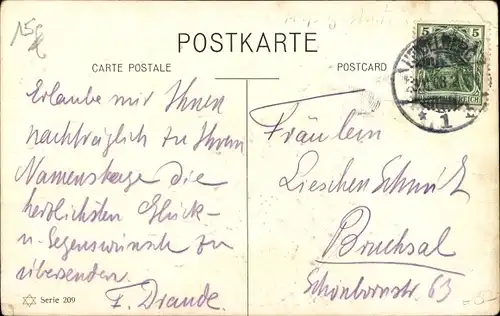 15
POSTKARTE
CARTE POSTALE
POSTCARD
5 5
HEIDELBERG
* 1
Erlaube mir Ihnen
nachträglich zu Ihrem
Namenstage die
herzlichsten Glück-
u. Segenswünsche zu
übersenden.
F. Drande.
Fräulein
Lieschen Schmitt
Bruchsal
Schönbornstr. 63
Serie 209